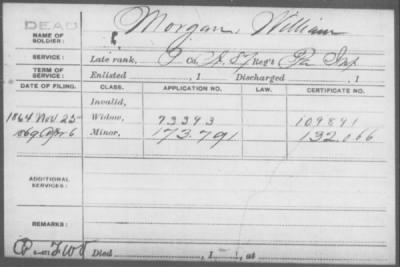 DEAD
NAME OF SOLDIER: Morgan, William
SERVICE: Late rank, Co. Reg't Pa Inf
TERM OF SERVICE: Enlisted , 1 Discharged , 1
DATE OF FILING. CLASS. APPLICATION NO. LAW. CERTIFICATE NO.
Invalid,
1864 Nov 25 Widow, 73393 109891
1869 Apr 6 Minor, 173.791 132.066
ADDITIONAL SERVICES:
REMARKS:
Died , 1 , at